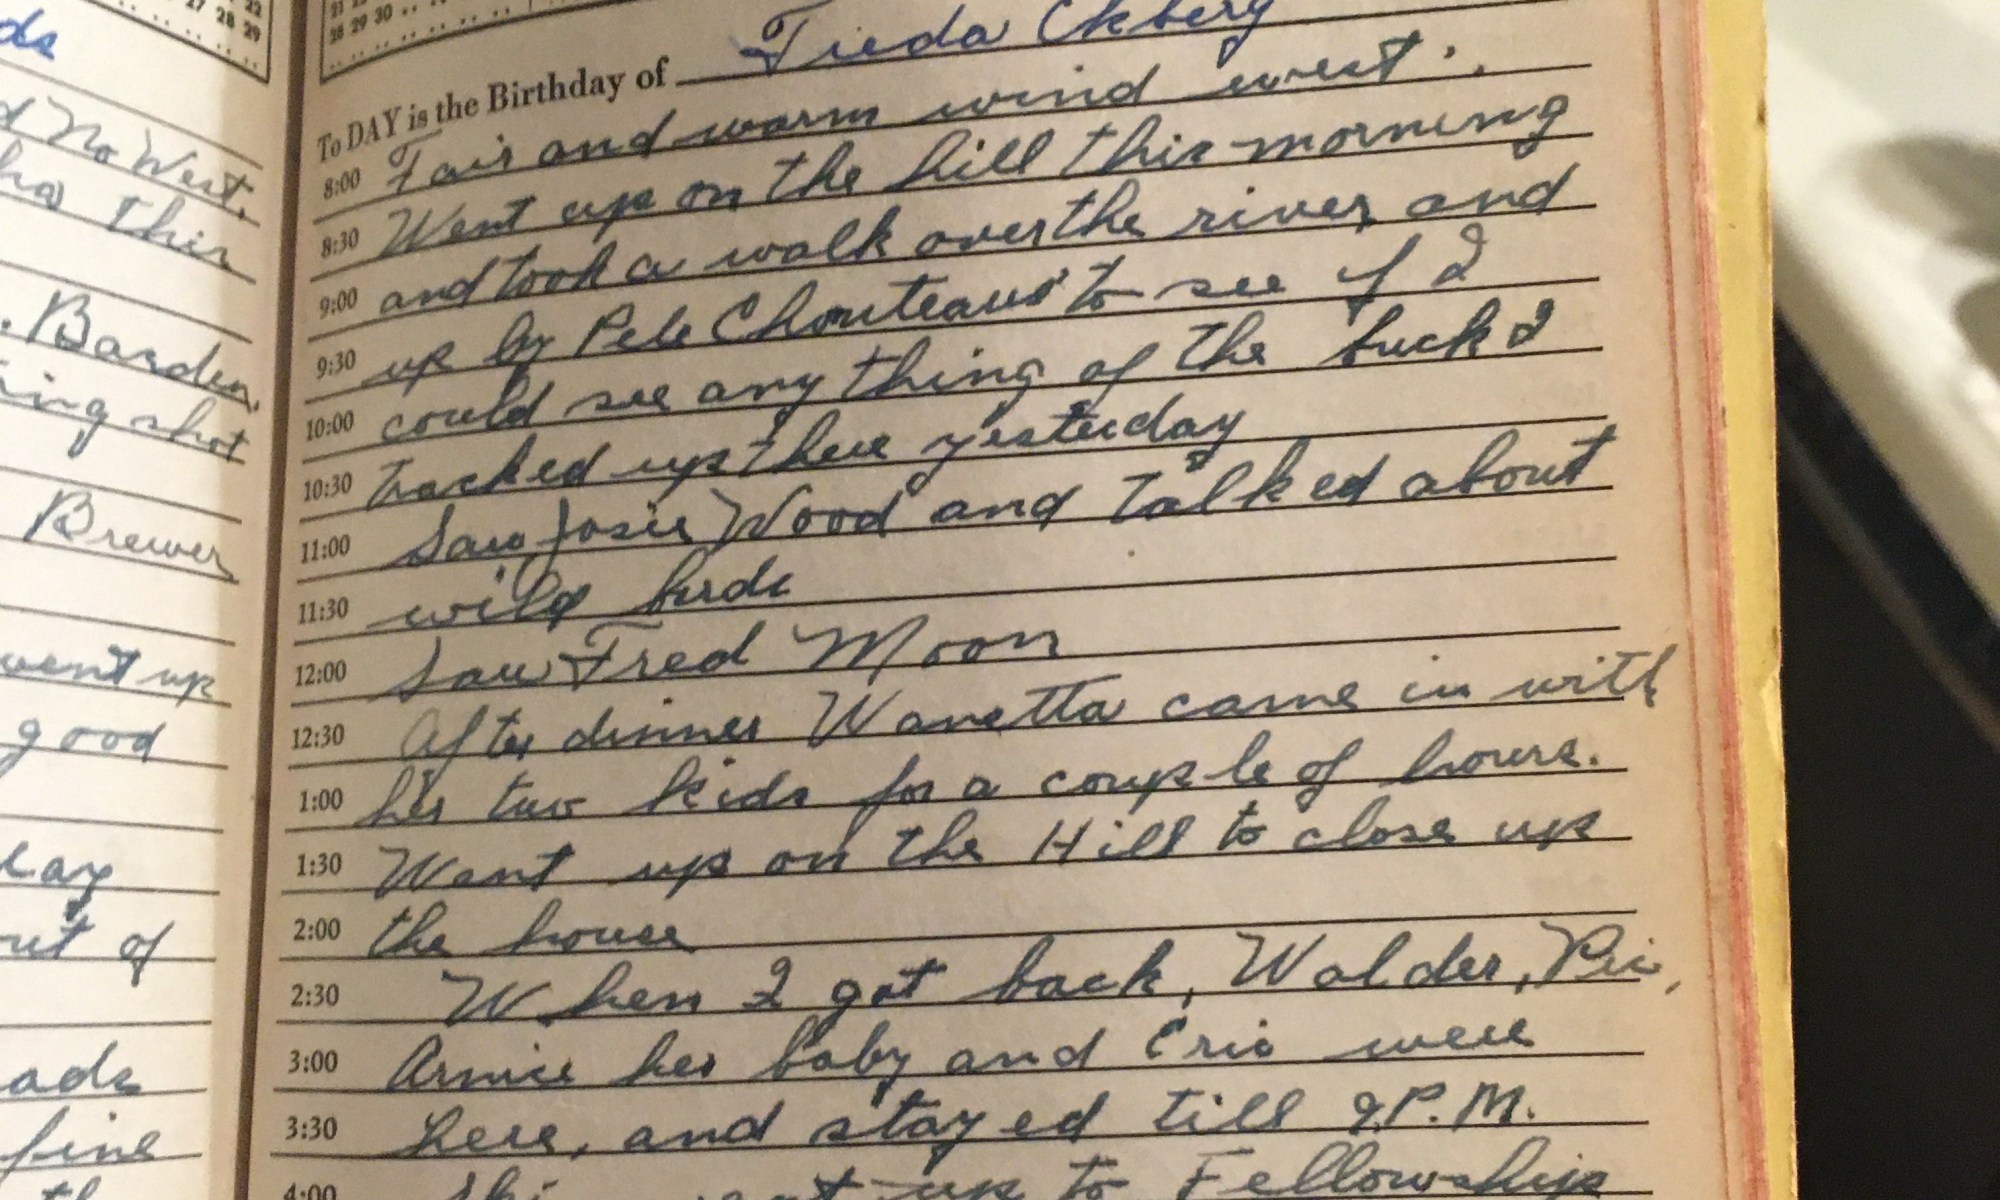 22
27 28 29
28 29 30
ds
d No West.
this
. Barden,
ing shot
Brewer
went up
good
out of
ads
fine
To DAY is the Birthday of Frieda Ekberg
8:00 Fair and warm wind west.
8:30 Went up on the hill this morning
9:00 and took a walk over the river and
9:30 up by Pete Chouteaus to see if I
10:00 could see any thing of the buck I
10:30 tracked up there yesterday
11:00 Saw Josie Wood and talked about
11:30 wild birds
12:00 Saw Fred Moon
12:30 After dinner Wanetta came in with
1:00 her two kids for a couple of hours.
1:30 Went up on the Hill to close up
2:00 the house
2:30 When I got back, Walder,
3:00 Arnice her baby and Eric were
3:30 here, and stayed till 9.P.M.
4:00 up to Fellowship